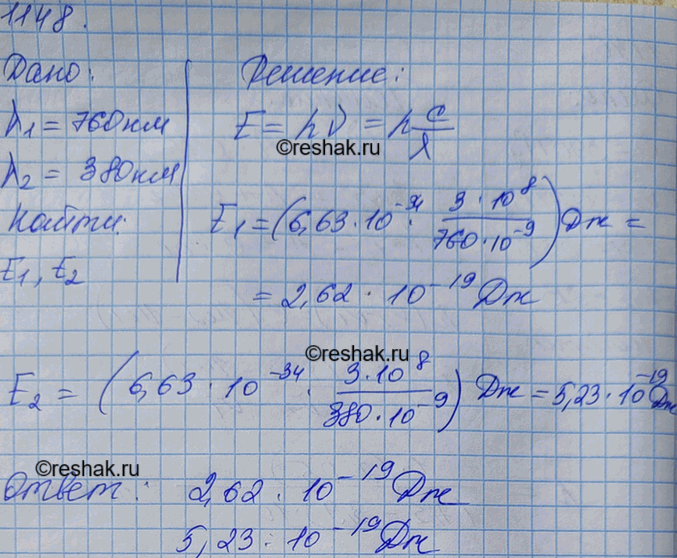 1148.
Дано:
λ1 = 760 нм
λ2 = 380 нм
Найти:
E1, E2
Решение:
E = hν = h c/λ
©reshak.ru
E1 = (6,63 · 10^-34 · 3 · 10^8 / 760 · 10^-9) Дж =
= 2,62 · 10^-19 Дж
©reshak.ru
E2 = (6,63 · 10^-34 · 3 · 10^8 / 380 · 10^-9) Дж = 5,23 · 10^-19 Дж
©reshak.ru
Ответ: 2,62 · 10^-19 Дж
5,23 · 10^-19 Дж